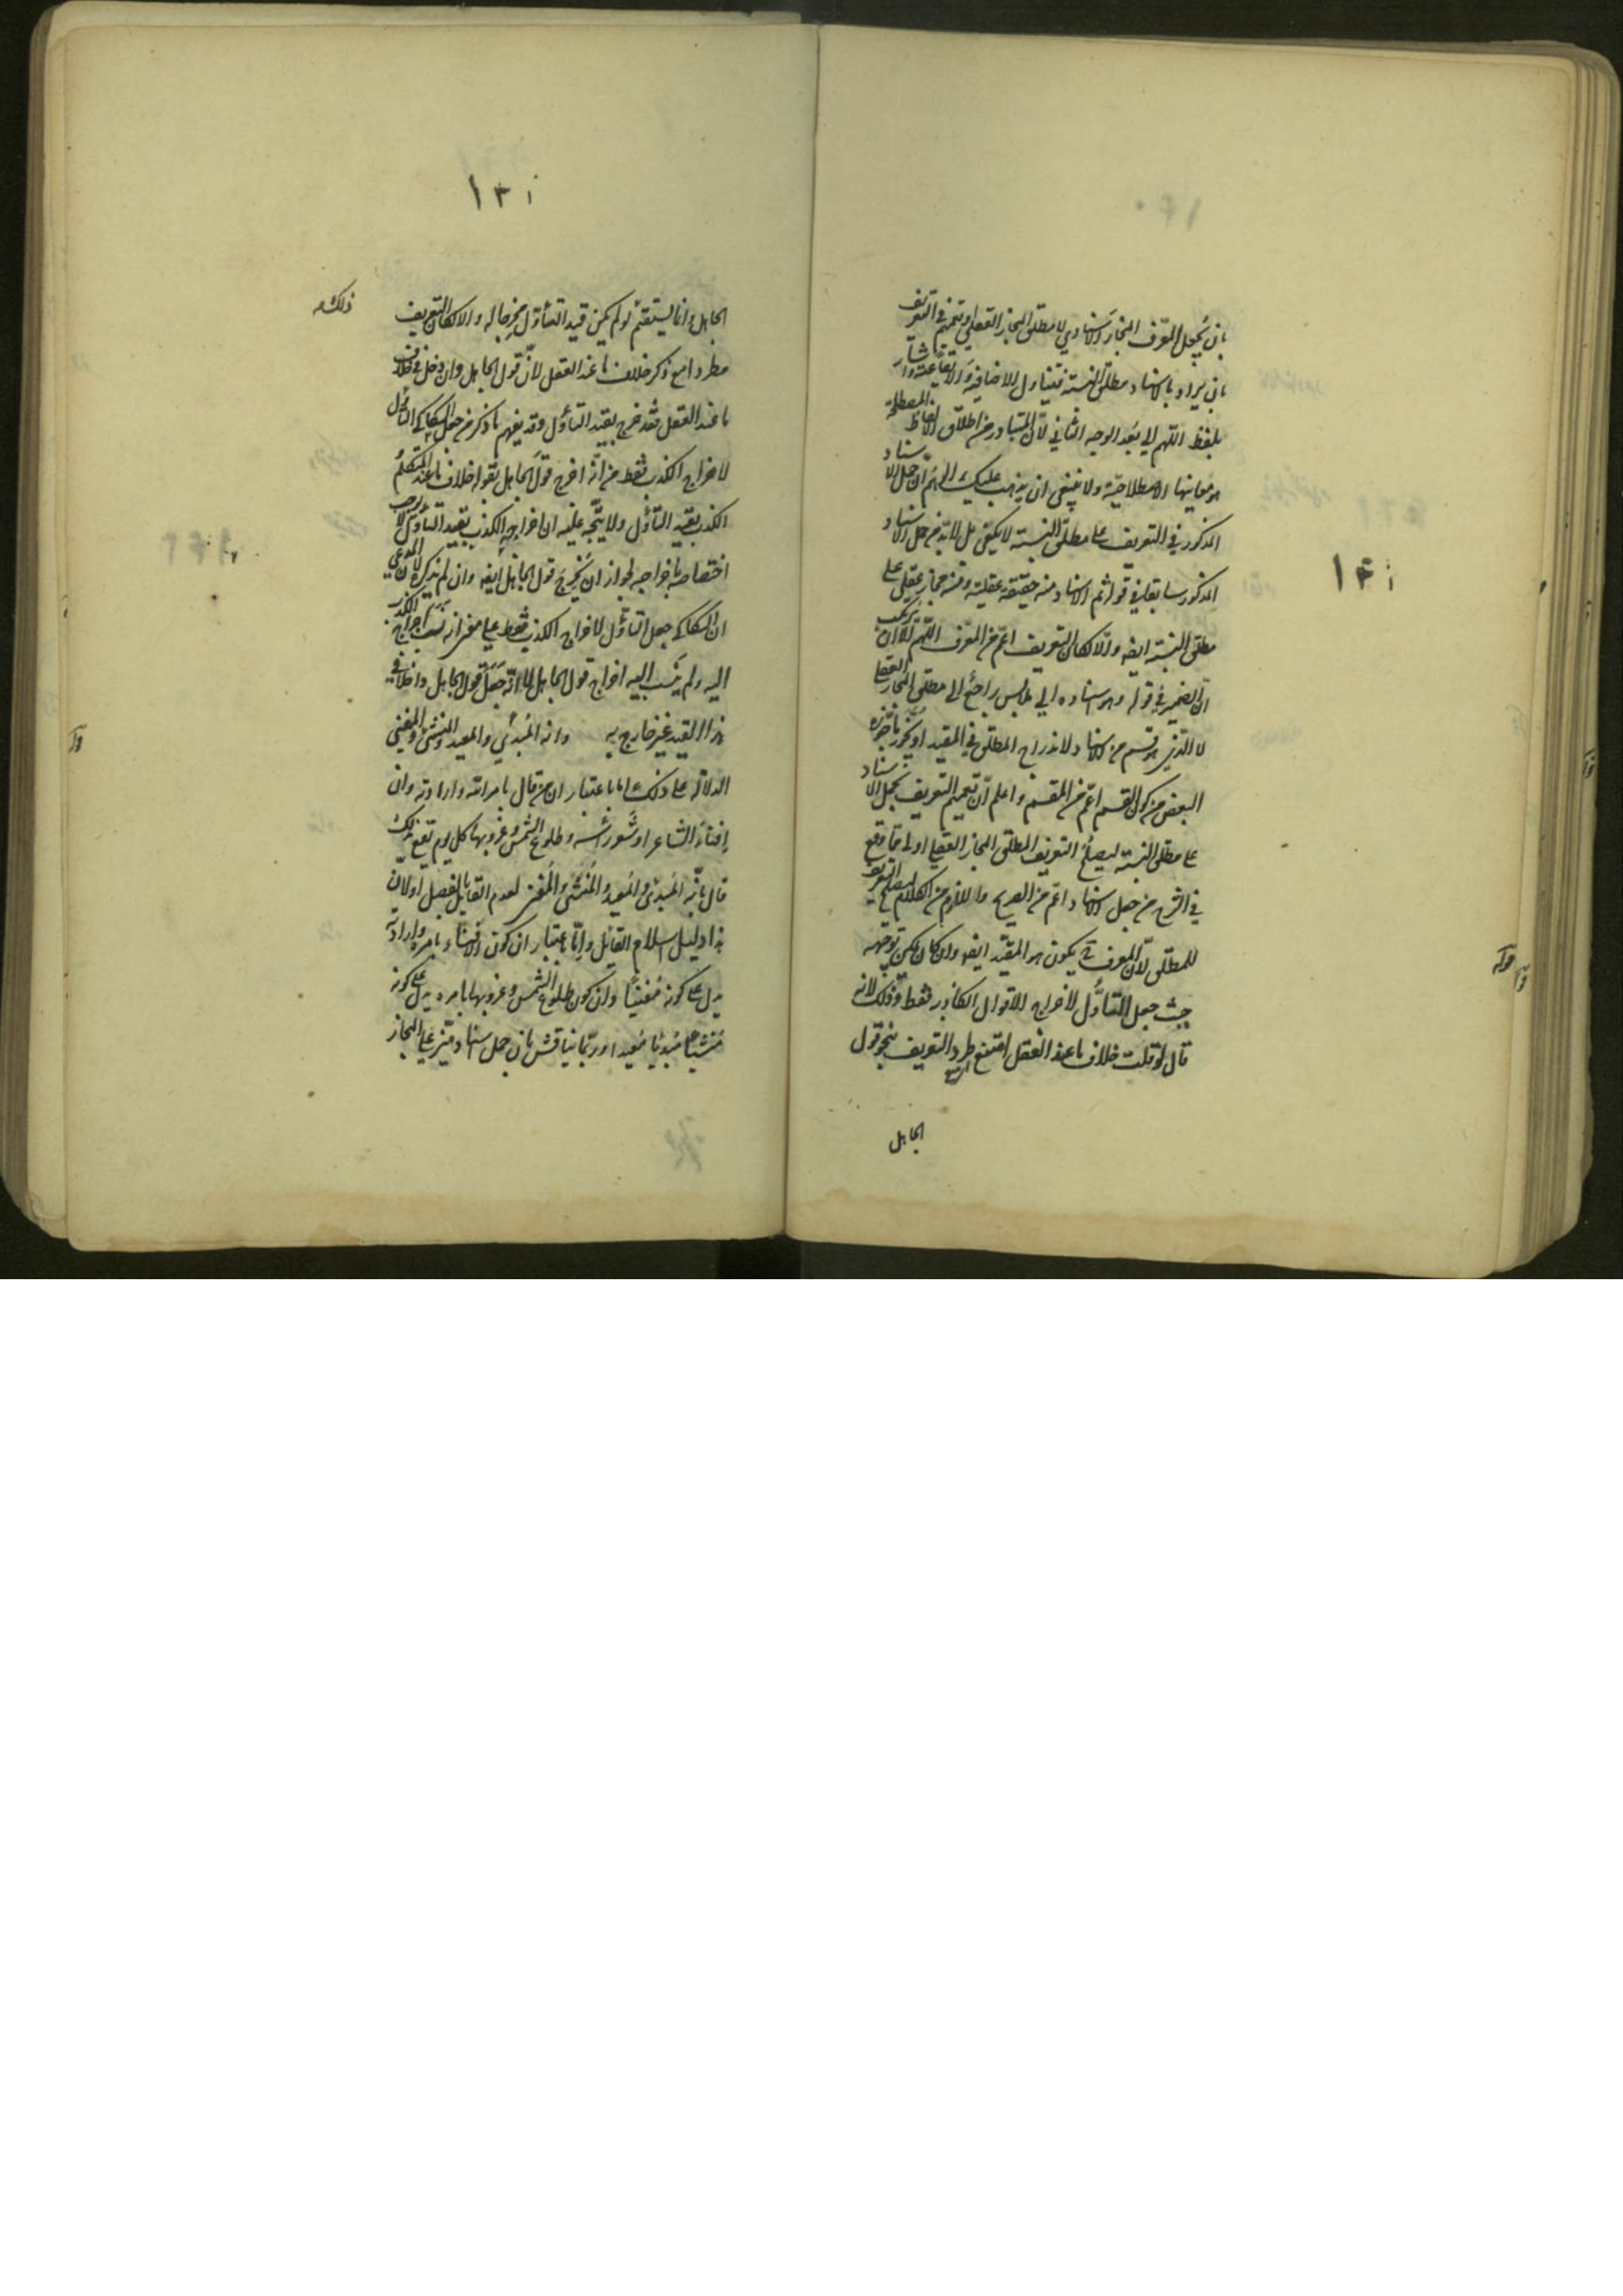 بان يجعل المعرف المجاز الاسنادي لا مطلق المجاز العقلي او تعميم في التعريف
بان يراد بالاسناد مطلق النسبة فيتناول الاضافية والايقاعية واشار
بلفظ اللهم الى بعد الوجه الثاني لان المتبادر من اطلاق الالفاظ المصطلحة
هو معانيها الاصطلاحية ولا ينبغي ان يذهب عليك ان حمل الاسناد
المذكور في التعريف على مطلق النسبة لا يكفي بل لا بد من حمل الاسناد
المذكور سابقا في قوله ثم الاسناد منه حقيقة عقلية ومنه مجاز عقلي على
مطلق النسبة ايضا والا لكان التعريف اعم من المعرف اللهم الا ان يرتكب
ان الضمير في قوله وهو اسناده الى ملابس راجع الى مطلق المجاز العقلي
لا الذي هو قسم من الاسناد لاندراج المطلق في المقيد او يجوز ما جوزه
البعض من كون القسم اعم من المقسم واعلم ان تعميم التعريف بحمل الاسناد
على مطلق النسبة ليصلح التعريف لمطلق المجاز العقلي اولى مما وقع
في الشرح من جعل الاسناد اعم من الصريح واللازم من الكلام ليصلح التعريف
للمطلق لان المعرف ح يكون هو المقيد ايضا وان كان يمكن توجيهه
حيث جعل التأول لاخراج الاقوال الكاذبة فقط وذلك لانه
قال لو قلت خلاف ما عند العقل امتنع طرد التعريف بنحو قول
الجاهل
١٣٠
الجاهل وانما يستقيم لو لم يكن قيد التأول مخرجا له والا لكان التعريف
مطردا مع ذكر خلاف ما عند العقل لان قول الجاهل وان دخل في خلاف
ما عند العقل فقد خرج بقيد التأول وقد يفهم ما ذكر من جعل السكاكي التأول
لاخراج الكذب فقط من انه اخرج قول الجاهل بقوله خلاف ما عند المتكلم
الكذب بقيد التأول ولا يتجه عليه ان اخراجه الكذب بقيد التأول لا يوجب
اختصاصه باخراجه لجواز ان يخرج قول الجاهل ايضا وان لم يذكره لان المدعي
ان السكاكي جعل التأول لاخراج الكذب فقط على معنى انه نسب اخراج الكذب
اليه ولم ينسب اليه اخراج قول الجاهل لا انه جعل قول الجاهل داخلا في
هذا القيد غير خارج به وانه المبدئ والمعيد والمنشئ والمفني
الدلالة على ذلك اما باعتبار ان من قال بامر الله وارادته وان
افناء الشاعر او شعور رأسه وطلوع الشمس وغروبها كل يوم يقع بذلك
قال بانه المبدئ والمعيد والمنشئ والمفني لعدم القائل بالفصل او لان
هذا دليل اسلام القائل واما باعتبار ان كون الافناء بامره وارادته
يدل على كونه مفنيا وان كون طلوع الشمس وغروبها بامره يدل على كونه
منشئا مبدئا معيدا وربما يناقش بان حمل اسناد ميز على المجاز
ذلك
١٣١